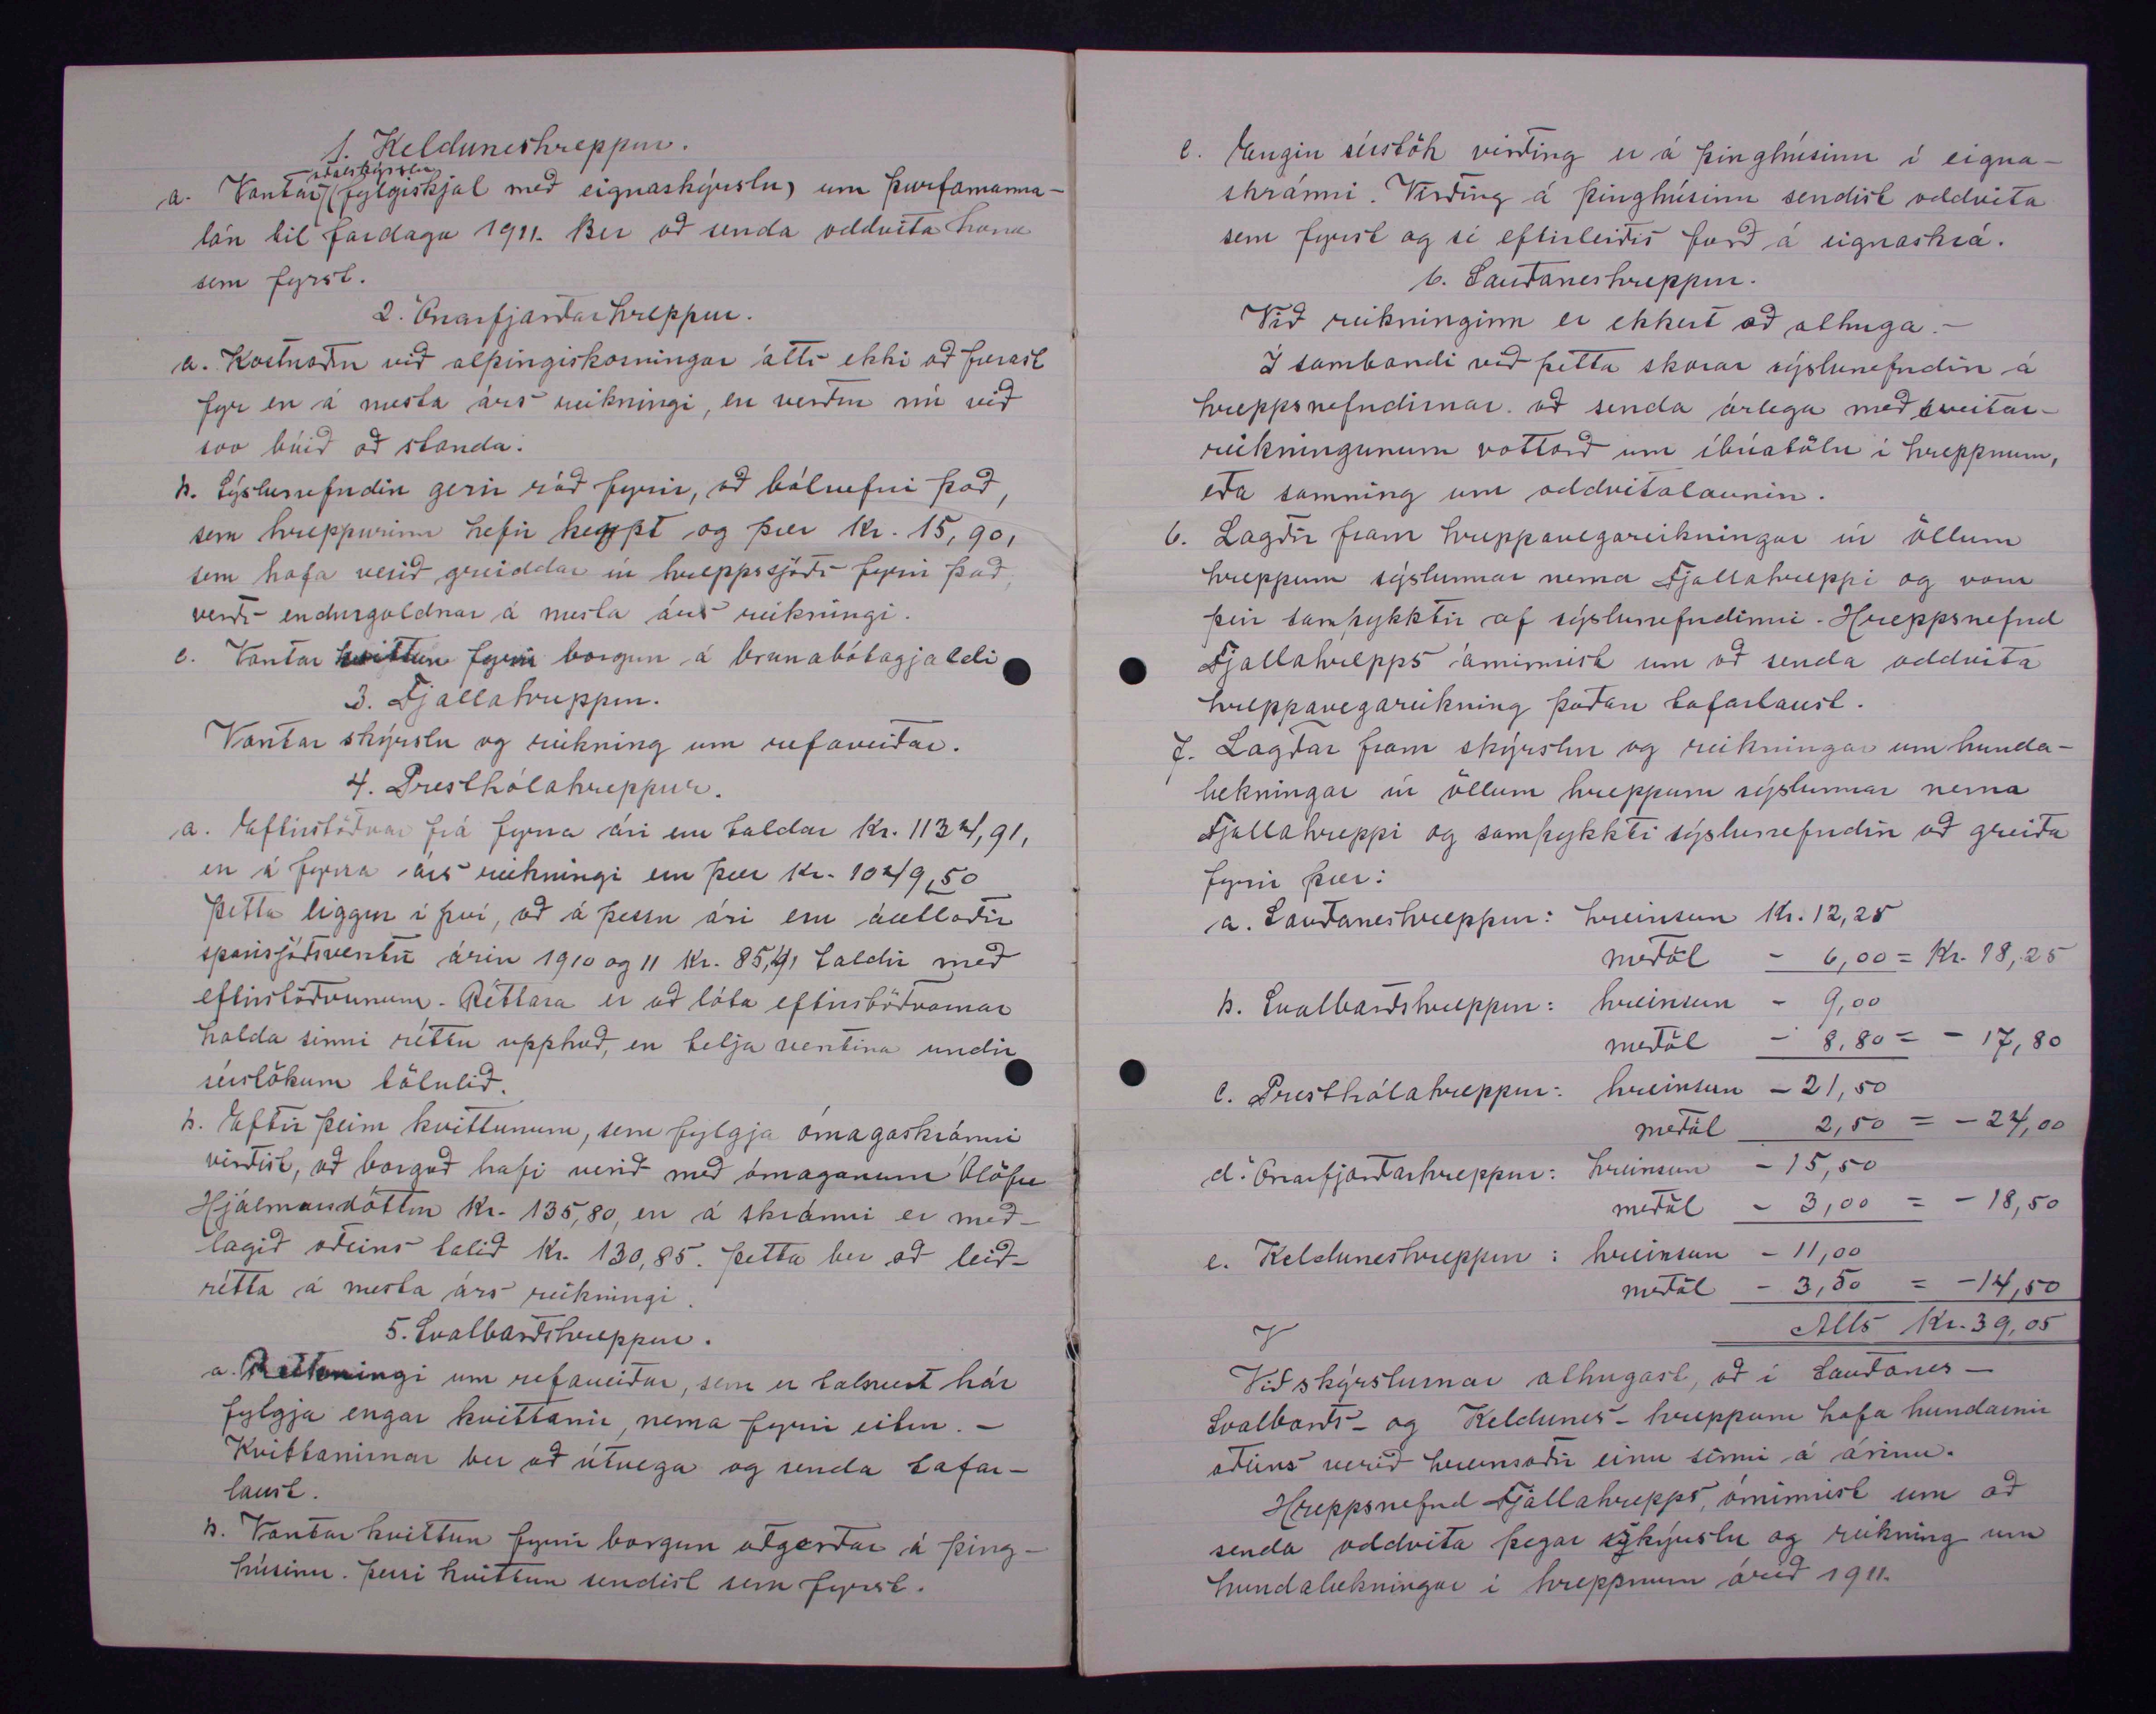 1. Kelduneshreppur.
aðalskýrslu
a. Vantar (fylgiskjal með eignaskýrslu) um þurfamanna-
lán til fardaga 1911. Ber að senda oddvita hana
sem fyrst.
2. Öxarfjarðarhreppur.
a. Kostnaður við alþingiskosningar átti ekki að færast
fyr en á næsta árs reikningi, en verður nú við
svo búið að standa.
b. Sýslunefndin gerir ráð fyrir, að bóluefni það,
sem hreppurinn hefir keypt og þær Kr. 15,90,
sem hafa verið greiddar úr hreppssjóði fyrir það,
verði endurgoldnar á næsta árs reikningi.
c. Vantar kvittun fyrir borgun á brunabótagjaldi
3. Fjallahreppur.
Vantar skýrslu og reikning um refaveiðar.
4. Presthólahreppur.
a. Eftirstöðvar frá fyrra ári eru taldar Kr. 1134,91,
en á fyrra árs reikningi eru þær Kr. 1049,50
Þetta liggur í því, að á þessu ári eru áætlaðir
sparisjóðsvextir árin 1910 og 11 Kr. 85,41 taldir með
eftirstöðvunum. Réttara er að láta eftirstöðvarnar
halda sinni réttu upphæð, en telja vextina undir
sérstökum tölulið.
b. Eftir þeim kvittunum, sem fylgja ómagaskránni
virðist, að borgað hafi verið með ómaganum Ólöfu
Hjálmarsdóttur Kr. 135,80, en á skránni er með-
lagið aðeins talið Kr. 130,85. Þetta ber að leið-
rétta á næsta árs reikningi.
5. Svalbarðshreppur.
a. Reikningi um refaveiðar, sem er talsvert hár
fylgja engar kvittanir, nema fyrir eitur. -
Kvittanirnar ber að útvega og senda tafar-
laust.
b. Vantar kvittun fyrir borgun aðgerðar á þing-
húsinu. Þessi kvittun sendist sem fyrst.
c. Engin sérstök virðing er á þinghúsinu í eigna-
skránni. Virðing á þinghúsinu sendist oddvita
sem fyrst og sé eftirleiðis færð á eignaskrá.
6. Sauðaneshreppur.
Við reikninginn er ekkert að athuga. -
Í sambandi við þetta skorar sýslunefndin á
hreppsnefndirnar að senda árlega með sveitar-
reikningunum vottorð um íbúatölu í hreppnum,
eða samning um oddvitalaunin.
6. Lagðir fram hreppavegareikningar úr öllum
hreppum sýslunnar nema Fjallahreppi og voru
þeir samþykktir af sýslunefndinni. Hreppsnefnd
Fjallahrepps áminnist um að senda oddvita
hreppavegareikning þaðan tafarlaust.
7. Lagðar fram skýrslur og reikningar um hunda-
lækningar úr öllum hreppum sýslunnar nema
Fjallahreppi og samþykkti sýslunefndin að greiða
fyrir þær:
a. Sauðaneshreppur: hreinsun Kr. 12,25
meðöl - 6,00 = Kr. 18,25
b. Svalbarðshreppur: hreinsun - 9,00
meðöl - 8,80 = - 17,80
c. Presthólahreppur: hreinsun - 21,50
meðöl 2,50 = - 24,00
d. Öxarfjarðarhreppur: hreinsun - 15,50
meðöl - 3,00 = - 18,50
e. Kelduneshreppur: hreinsun - 11,00
meðöl - 3,50 = - 14,50
Alls Kr. 39,05
Við skýrslurnar athugast, að í Sauðanes-
Svalbarðs- og Keldunes-hreppum hafa hundarnir
aðeins verið hreinsaðir einu sinni á árinu.
Hreppsnefnd Fjallahrepps, áminnist um að
senda oddvita þegar skýrslu og reikning um
hundalækningar í hreppnum árið 1911.